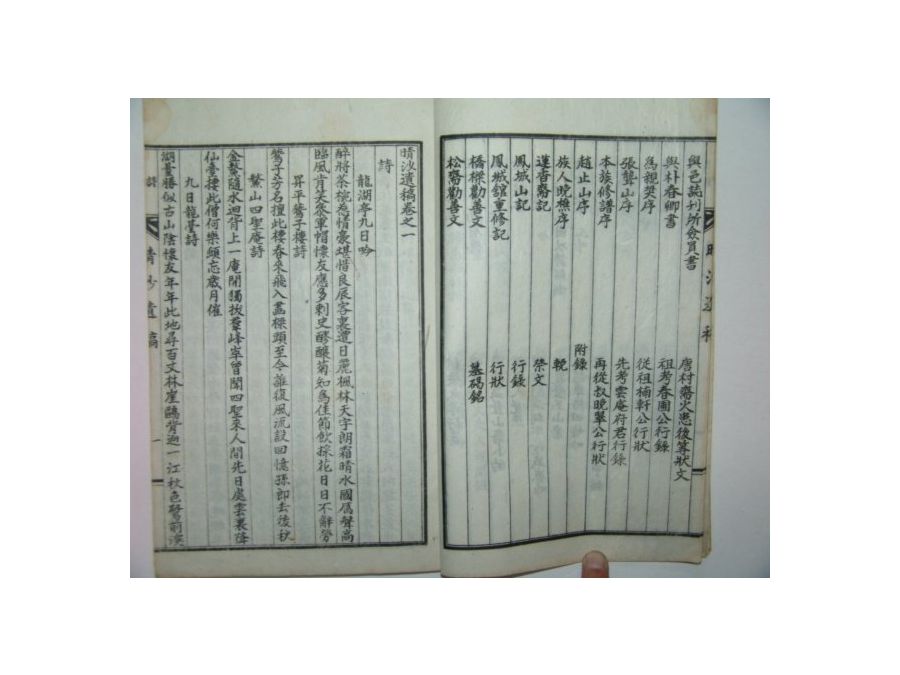 與邑誌刊所僉員書
與朴春卿書
為親契序
張聾山序
本族修譜序
趙止山序
族人晩樵序
蓮沓齋記
鳳城山記
鳳城舘重修記
橋樑勸善文
松齋勸善文
唐村齋火患後等狀文
祖考春圃公行錄
從祖楠軒公行狀
先考雲庵府君行錄
再從叔晩翠公行狀
附錄
輓
祭文
行錄
行狀
墓碣銘
晴沙遺稿卷之一
詩
龍湖亭九日吟
醉將茶椀惹情豪堪惜良辰客裏遭日麗楓林天宇朗霜晴水國鴈聲高
臨風肯笑叅軍帽懷友應多刺史醪釀菊知為佳節飮採花日日不辭勞
昇平鶩子樓詩
鶩子方名擅此樓春來飛入畵樑頭至今誰復風流設回憶孫郞去後秋
鰲山四聖庵詩
金鰲隨水迴背上一庵開獨拔羣峰峷曾聞四聖來人間先日處雲裏降
仙臺捿此僧何樂頓忘歲月催
九日龍臺詩
湖臺勝似古山陰懷友年年此地尋百丈林崖鷗背逈一江秋色鷺前深
詩
晴沙遺稿
一